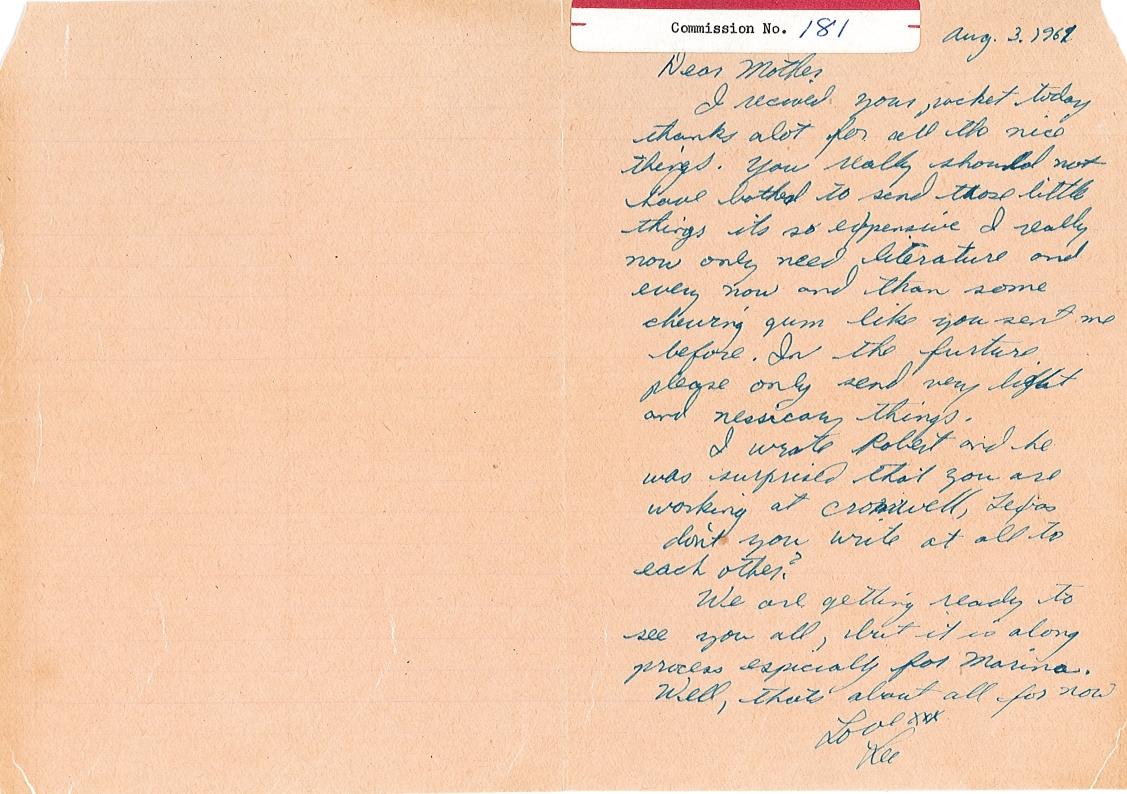 Commission No. 181
Aug. 3. 1961
Dear Mother
I recived your packet today
thanks alot for all the nice
things. You really should not
have bothed to send those little
things its so expensive I really
now only need literature and
every now and than some
chewing gum like you sent me
before. In the furture
please only send very light
and nessicary things.
I wrote Robert and he
was surprised that you are
working at cromwell, Texas
don't you write at all to
each other?
We are getting ready to
see you all, but it is along
process espicially for Marina.
Well, thats about all for now
Love xxx
Lee